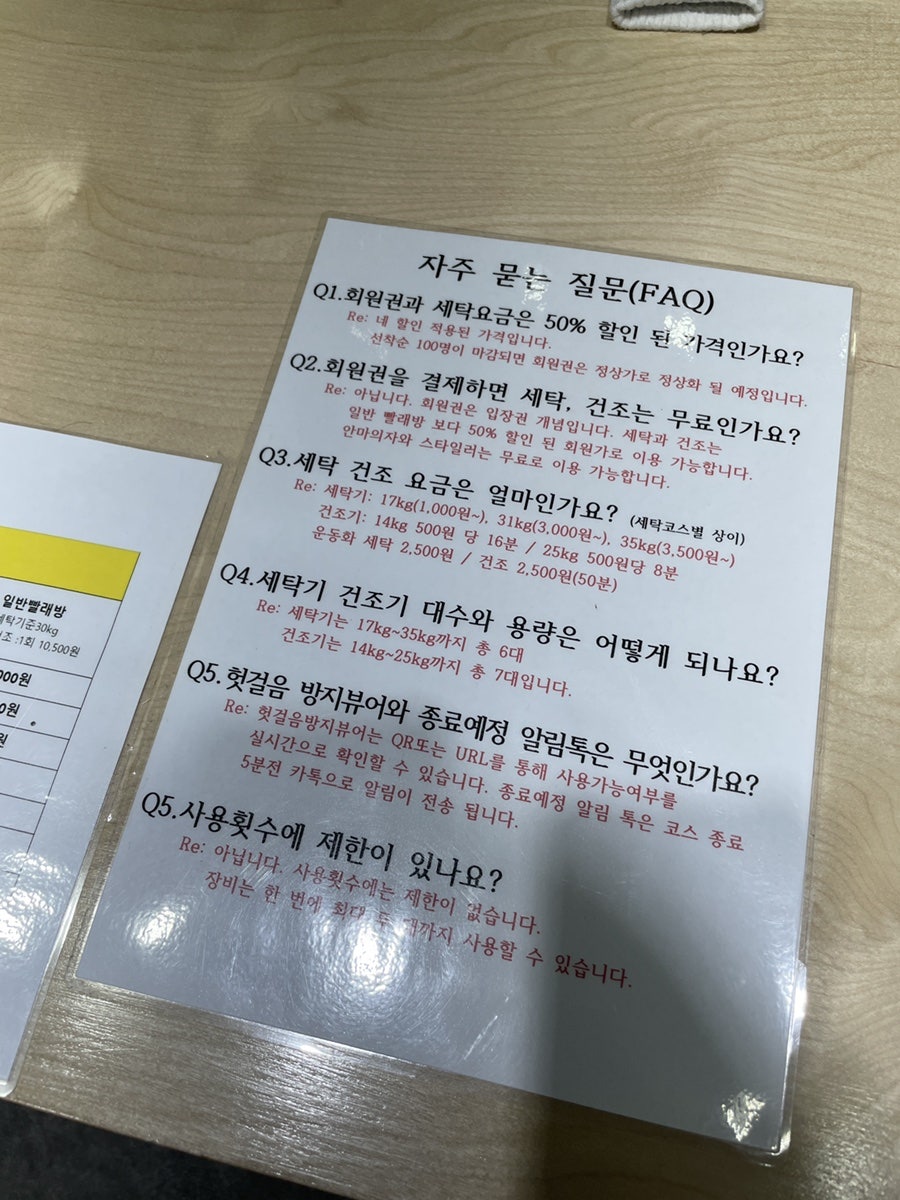 자주 묻는 질문(FAQ)
Q1.회원권과 세탁요금은 50% 할인 된 가격인가요?
Re: 네 할인 적용된 가격입니다.
선착순 100명이 마감되면 회원권은 정상가로 정상화 될 예정입니다.
Q2.회원권을 결제하면 세탁, 건조는 무료인가요?
Re: 아닙니다. 회원권은 입장권 개념입니다. 세탁과 건조는
일반 빨래방 보다 50% 할인 된 회원가로 이용 가능합니다.
안마의자와 스타일러는 무료로 이용 가능합니다.
Q3.세탁 건조 요금은 얼마인가요? (세탁코스별 상이)
Re: 세탁기: 17kg(1,000원~), 31kg(3,000원~), 35kg(3,500원~)
건조기: 14kg 500원 당 16분 / 25kg 500원당 8분
운동화 세탁 2,500원 / 건조 2,500원(50분)
Q4.세탁기 건조기 대수와 용량은 어떻게 되나요?
Re: 세탁기는 17kg~35kg까지 총 6대
건조기는 14kg~25kg까지 총 7대입니다.
Q5.헛걸음 방지뷰어와 종료예정 알림톡은 무엇인가요?
Re: 헛걸음방지뷰어는 QR또는 URL를 통해 사용가능여부를
실시간으로 확인할 수 있습니다. 종료예정 알림 톡은 코스 종료
5분전 카톡으로 알림이 전송 됩니다.
Q5.사용횟수에 제한이 있나요?
Re: 아닙니다. 사용횟수에는 제한이 없습니다.
장비는 한 번에 최대 두 대까지 사용할 수 있습니다.
일반빨래방
세탁기준30kg
조 :1회 10,500원
000원
0원
원